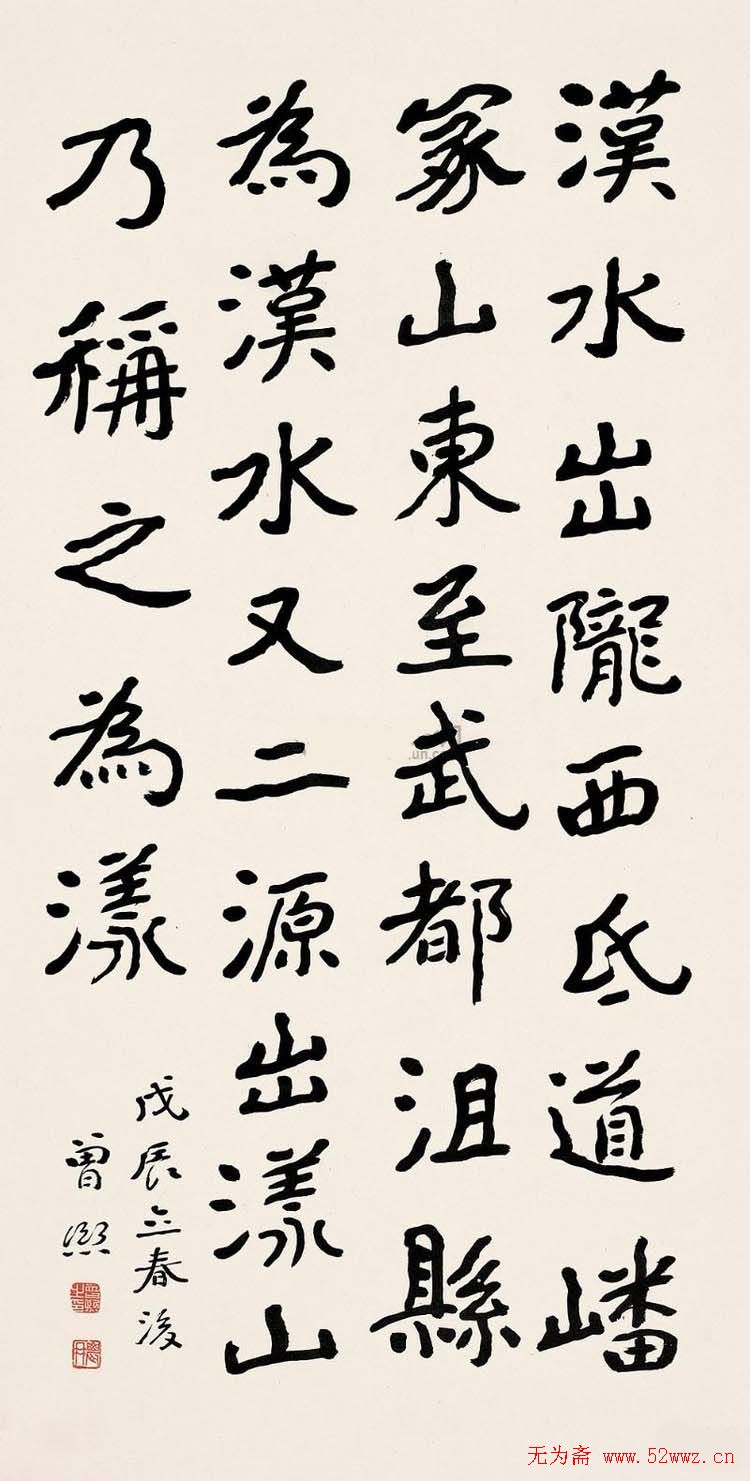 漢水出隴西氐道嶓
冢山東至武都沮縣
為漢水又二源出漾山
乃稱之為漾
戊辰立春後
曾熙
无为斋 www.52wwz.cn